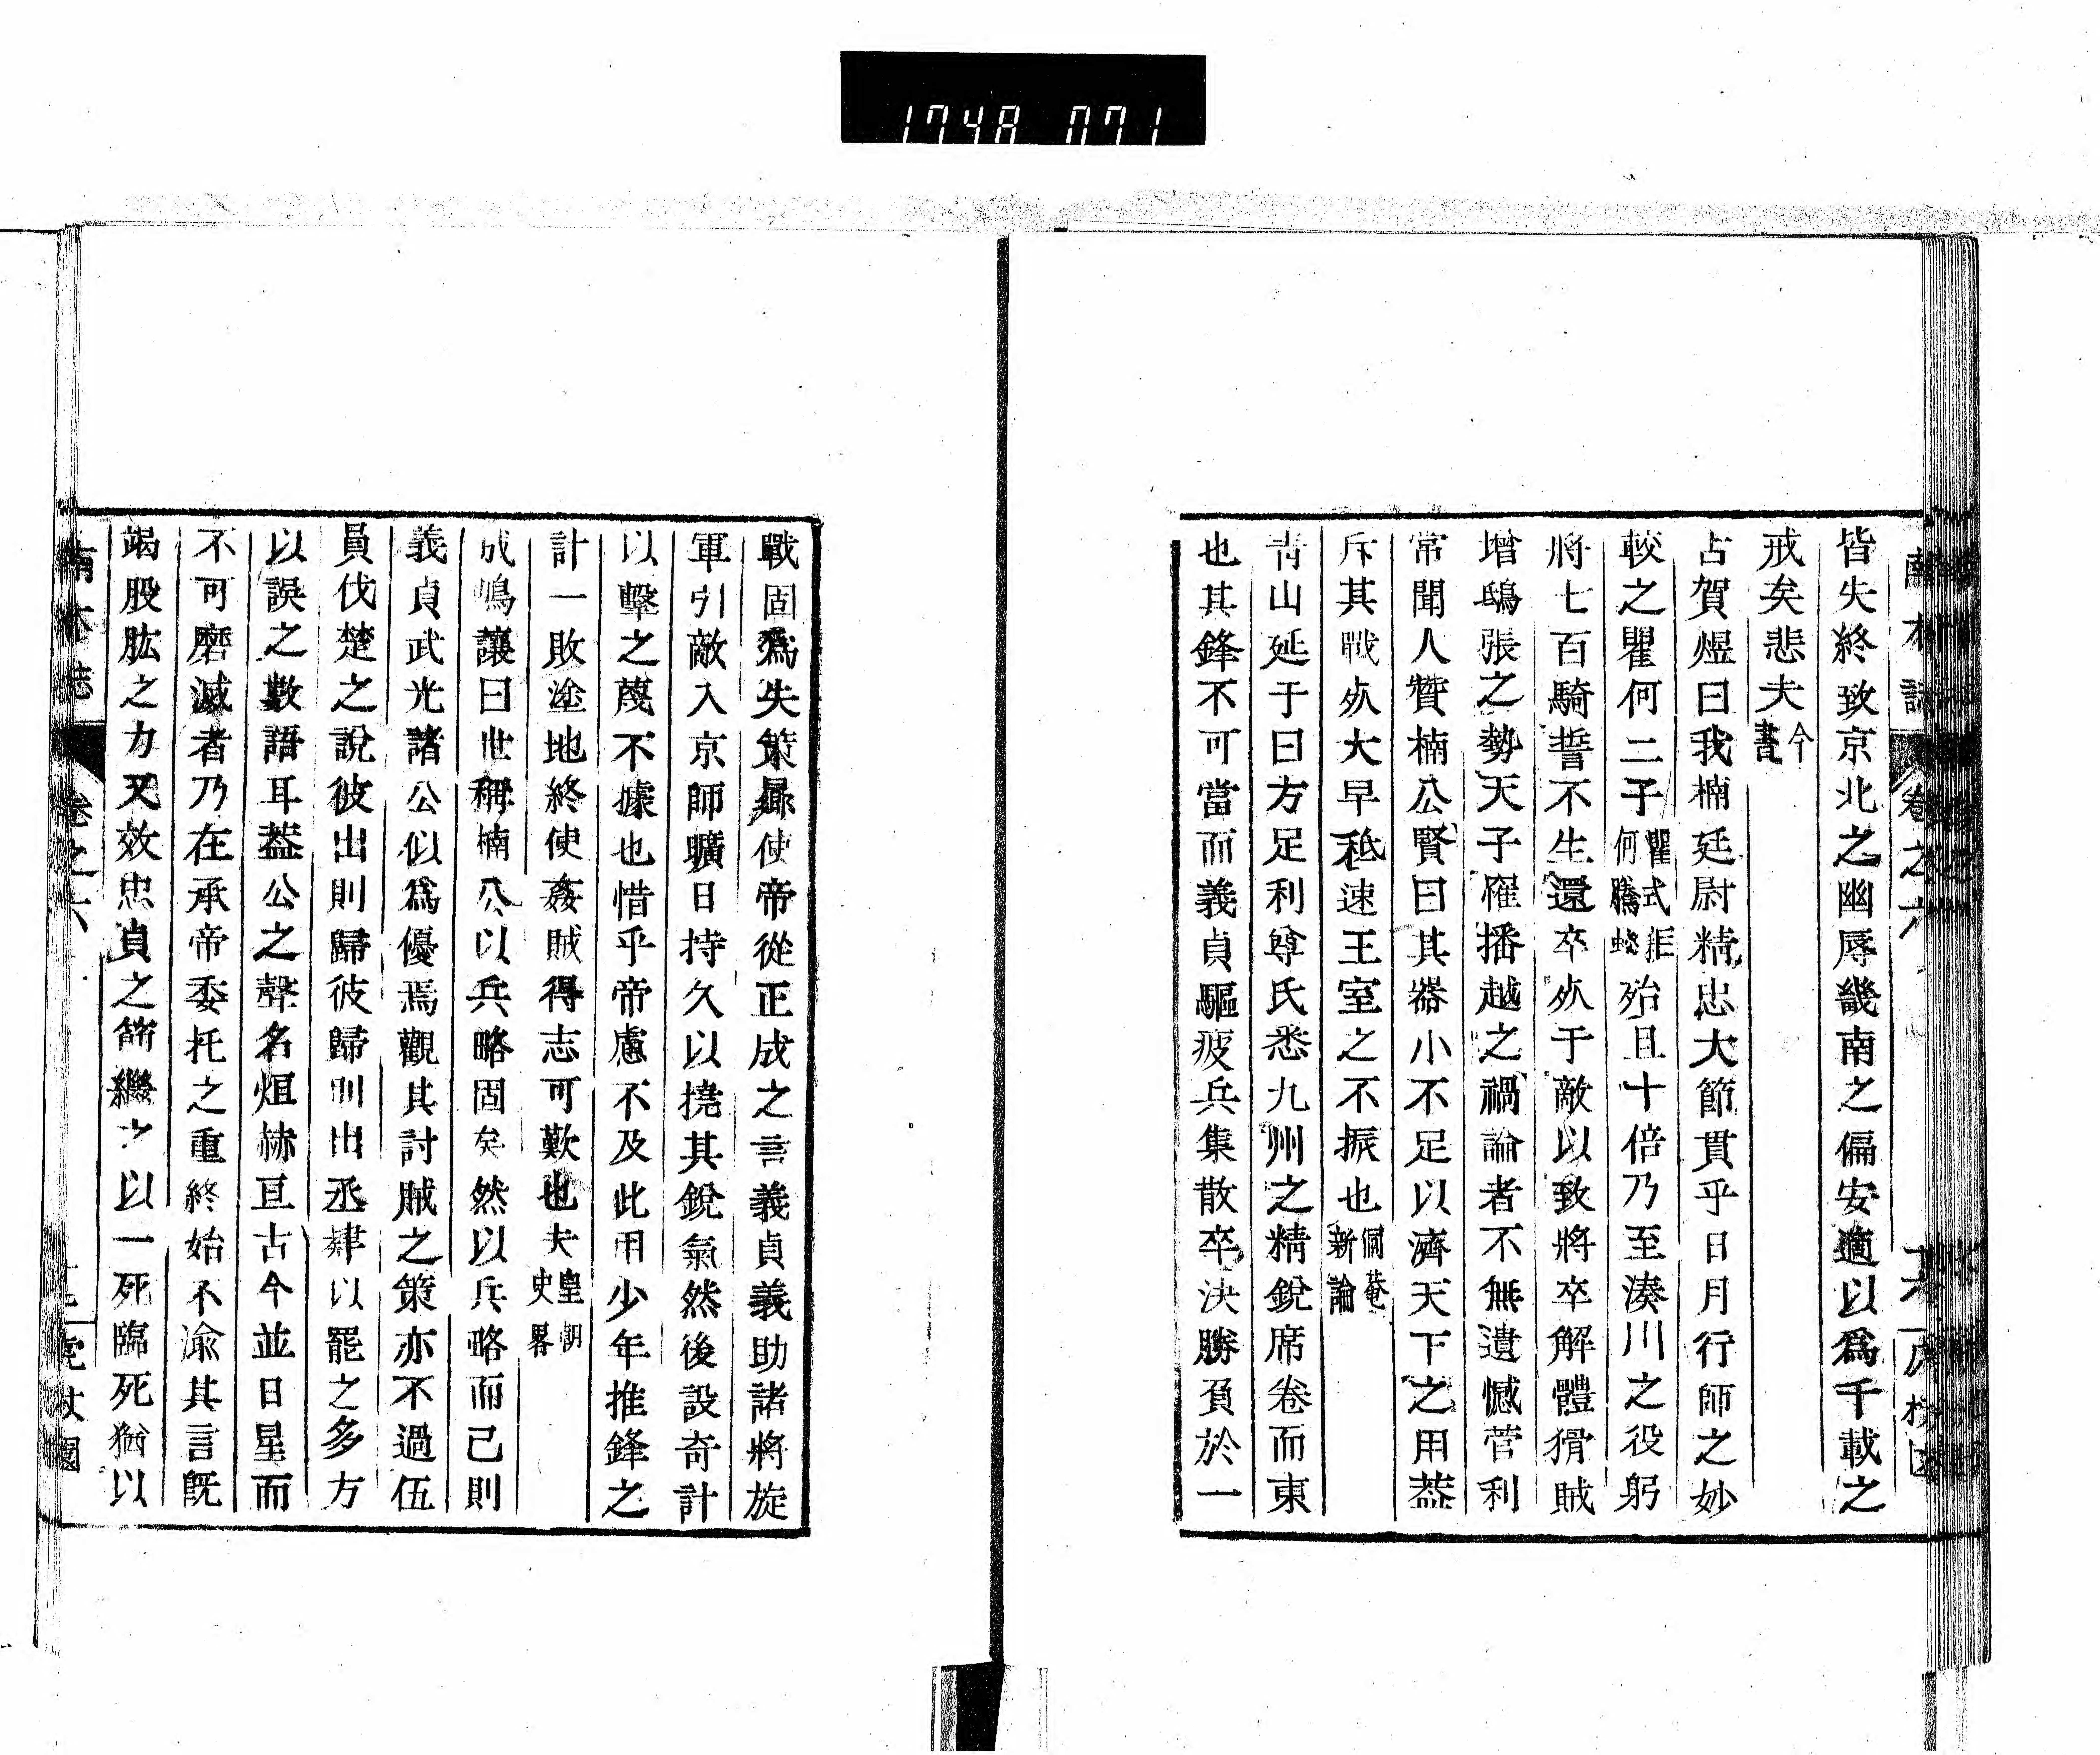 1748 071
皆失終致京北之幽辱畿南之偏安適以爲千載之
戒矣悲夫今書
古賀煜曰我楠廷尉精忠大節貫乎日月行師之妙
較之瞿何二子瞿式耜何騰蛟殆且十倍乃至湊川之役躬
將七百騎誓不生還卒歿于敵以致將卒解體猾賊
增鴟張之勢天子罹播越之禍論者不無遺憾菅利
常聞人贊楠公賢曰其器小不足以濟天下之用葢
斥其戰歿大早秪速王室之不振也侗菴新論
青山延于曰方足利尊氏悉九州之精銳席卷而東
也其鋒不可當而義貞驅疲兵集散卒決勝負於一
戰固爲失策曏使帝從正成之言義貞義助諸將旋
軍引敵入京師曠日持久以撓其銳氣然後設奇計
以擊之蔑不據也惜乎帝慮不及此用少年推鋒之
計一敗塗地終使姦賊得志可歎也夫皇朝史畧
成島讓曰世稱楠公以兵略固矣然以兵略而已則
義貞武光諸公似爲優焉觀其討賊之策亦不過伍
員伐楚之說彼出則歸彼歸則出丞肄以罷之多方
以誤之數語耳葢公之聲名烜赫亘古今並日星而
不可磨滅者乃在承帝委托之重終始不渝其言旣
竭股肱之力又效忠貞之節繼之以一死臨死猶以
南木誌 卷之六